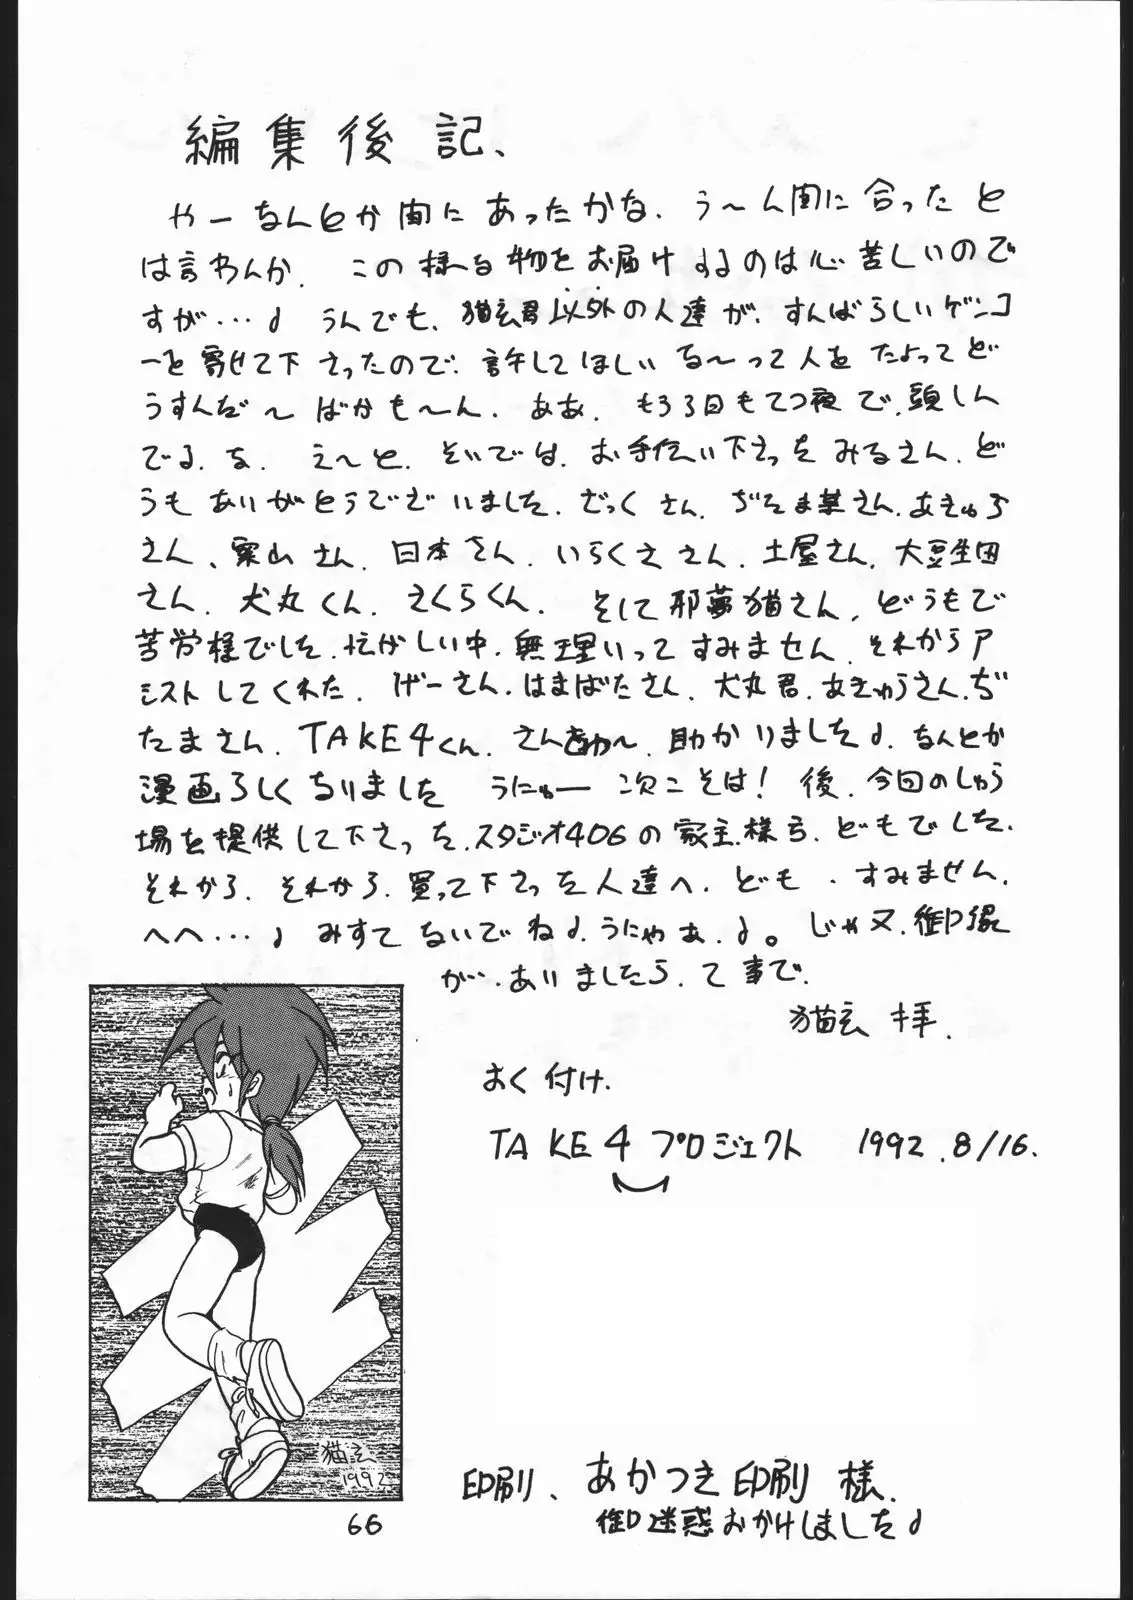 編集後記、
やーなんとか間にあったかな、う〜ん間に合ったと
は言わんか、この様な物をお届けするのは心苦しいので
すが…♩ うんでも、猫玄君以外の人達が、すんばらしいゲンコ
ーを寄せて下さったので、許してほしいな〜って人をたよってど
うすんだ〜ばかも〜ん、ああ、もう3日もてつ夜で、頭しん
でるな、え〜と、そいでは、お手伝い下さったみるさん、ど
うもありがとうでございました、ざっくさん、ぢたま某さん、あきゅう
さん、栗山さん、日本さん、いらくささん、土屋さん、大豆生田
さん、犬丸くん、さくらくん、そして邪夢猫さん、どうもで
苦労様でした、忙がしい中、無理いってすみません、それからア
シストしてくれた、げーさん、はまばたさん、犬丸君、あきゅうさん、ぢ
たまさん、TAKE4くん、さんきゅ〜、助かりました♩、なんとか
漫画らしくなりました うにゅー 次こそは! 後、今回のしゅら
場を提供して下さった、スタジオ406の家主様も、どもでした、
それから、それから、買って下さった人達へ、ども、すみません、
へへ…♩ みすてないでね♩、うにゃあ、♩。じゃ又、御縁
が…ありましたら、て事で、
猫玄 拝、
おく付け、
TAKE4プロジェクト 1992.8/16.
印刷、あかつき印刷 様、
御迷惑おかけしました♩
猫玄
1992
66